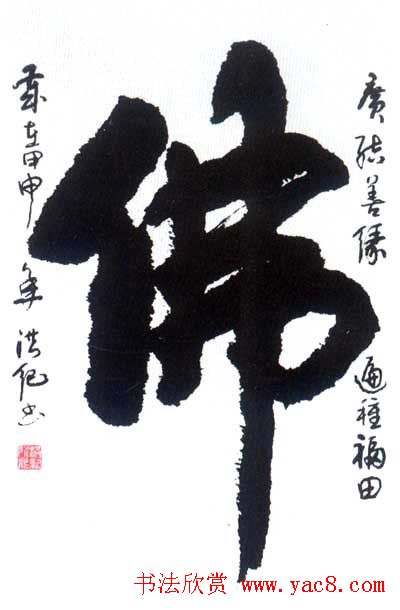 廣結善緣 遍種福田
佛
歲在甲申年 洪紀书
书法欣赏 www.yac8.com